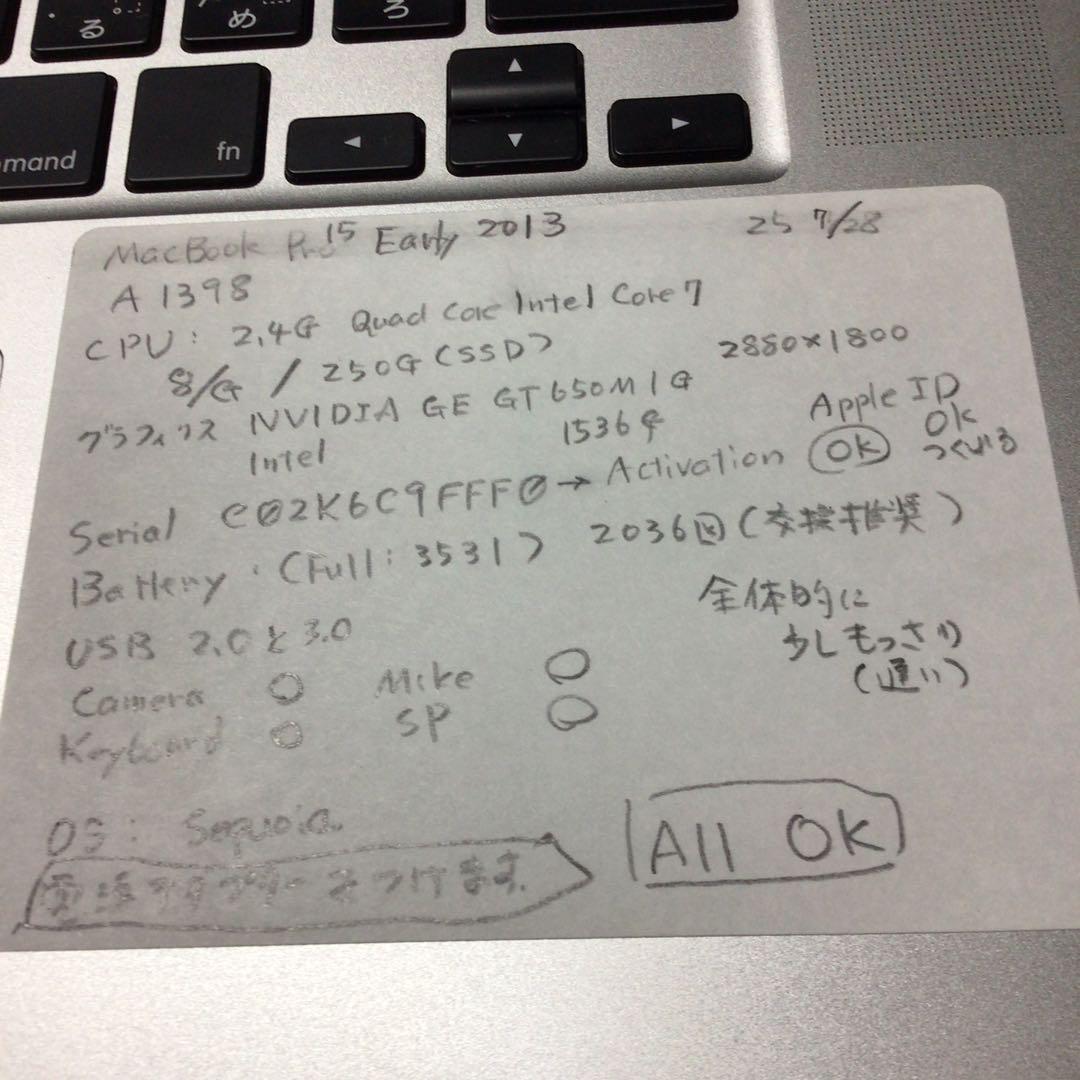 る め ろ
mmand fn
MacBook Pro 15 Early 2013 25 7/28
A 1398
CPU: 2.4G Quad Core Intel Core 7
8/G / 250G (SSD) 2880×1800
グラフィクス NVIDIA GE GT 650M 1G
Intel 1536
Serial C02K6C9FFF0 → Activation OK Apple ID OK
Battery (Full: 3531) 2036回 (交換推奨)
USB 2.0と3.0
全体的に
少しもっさり
Camera ○ Mike ○
Keyboard ○ SP ○
OS: Sequoia
つけます.
All OK